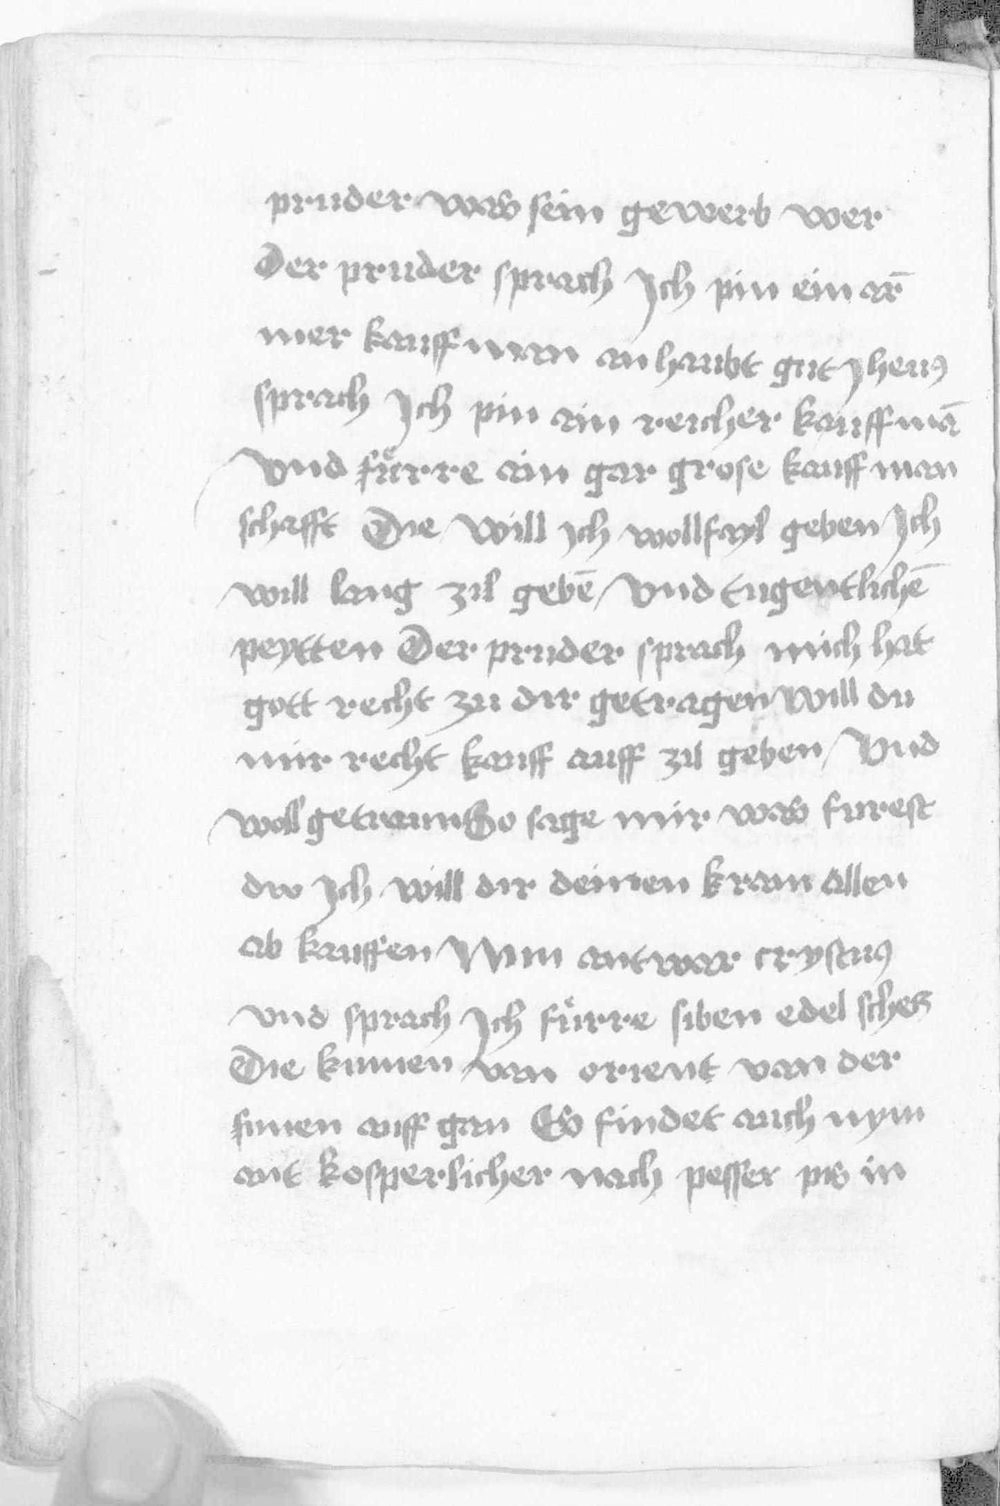 pruder was sein gewerb wer
Der pruder sprach Ich pin ein ar̄
mer kauffman an haubt gut Jheus
sprach Ich pin ain reicher kauffmā
Vnd fürre ain gar grose kauffman
schafft Die will ich wollfayl geben Ich
will lang zil gebē Vnd tugentlichē
peytten Der pruder sprach mich hat
gott recht zu dir getragen will du
mir recht kauff auff zil geben Vnd
woll getraun So sage mir was furest
dw Ich will dir deinen kram allen
ab kauffen Nun antwar crystus
vnd sprach Ich fürre siben edel schetz
Die kumen van orient van der
sunen auff gan Es findet auch nym
ant kosperlicher nach pesser pis in